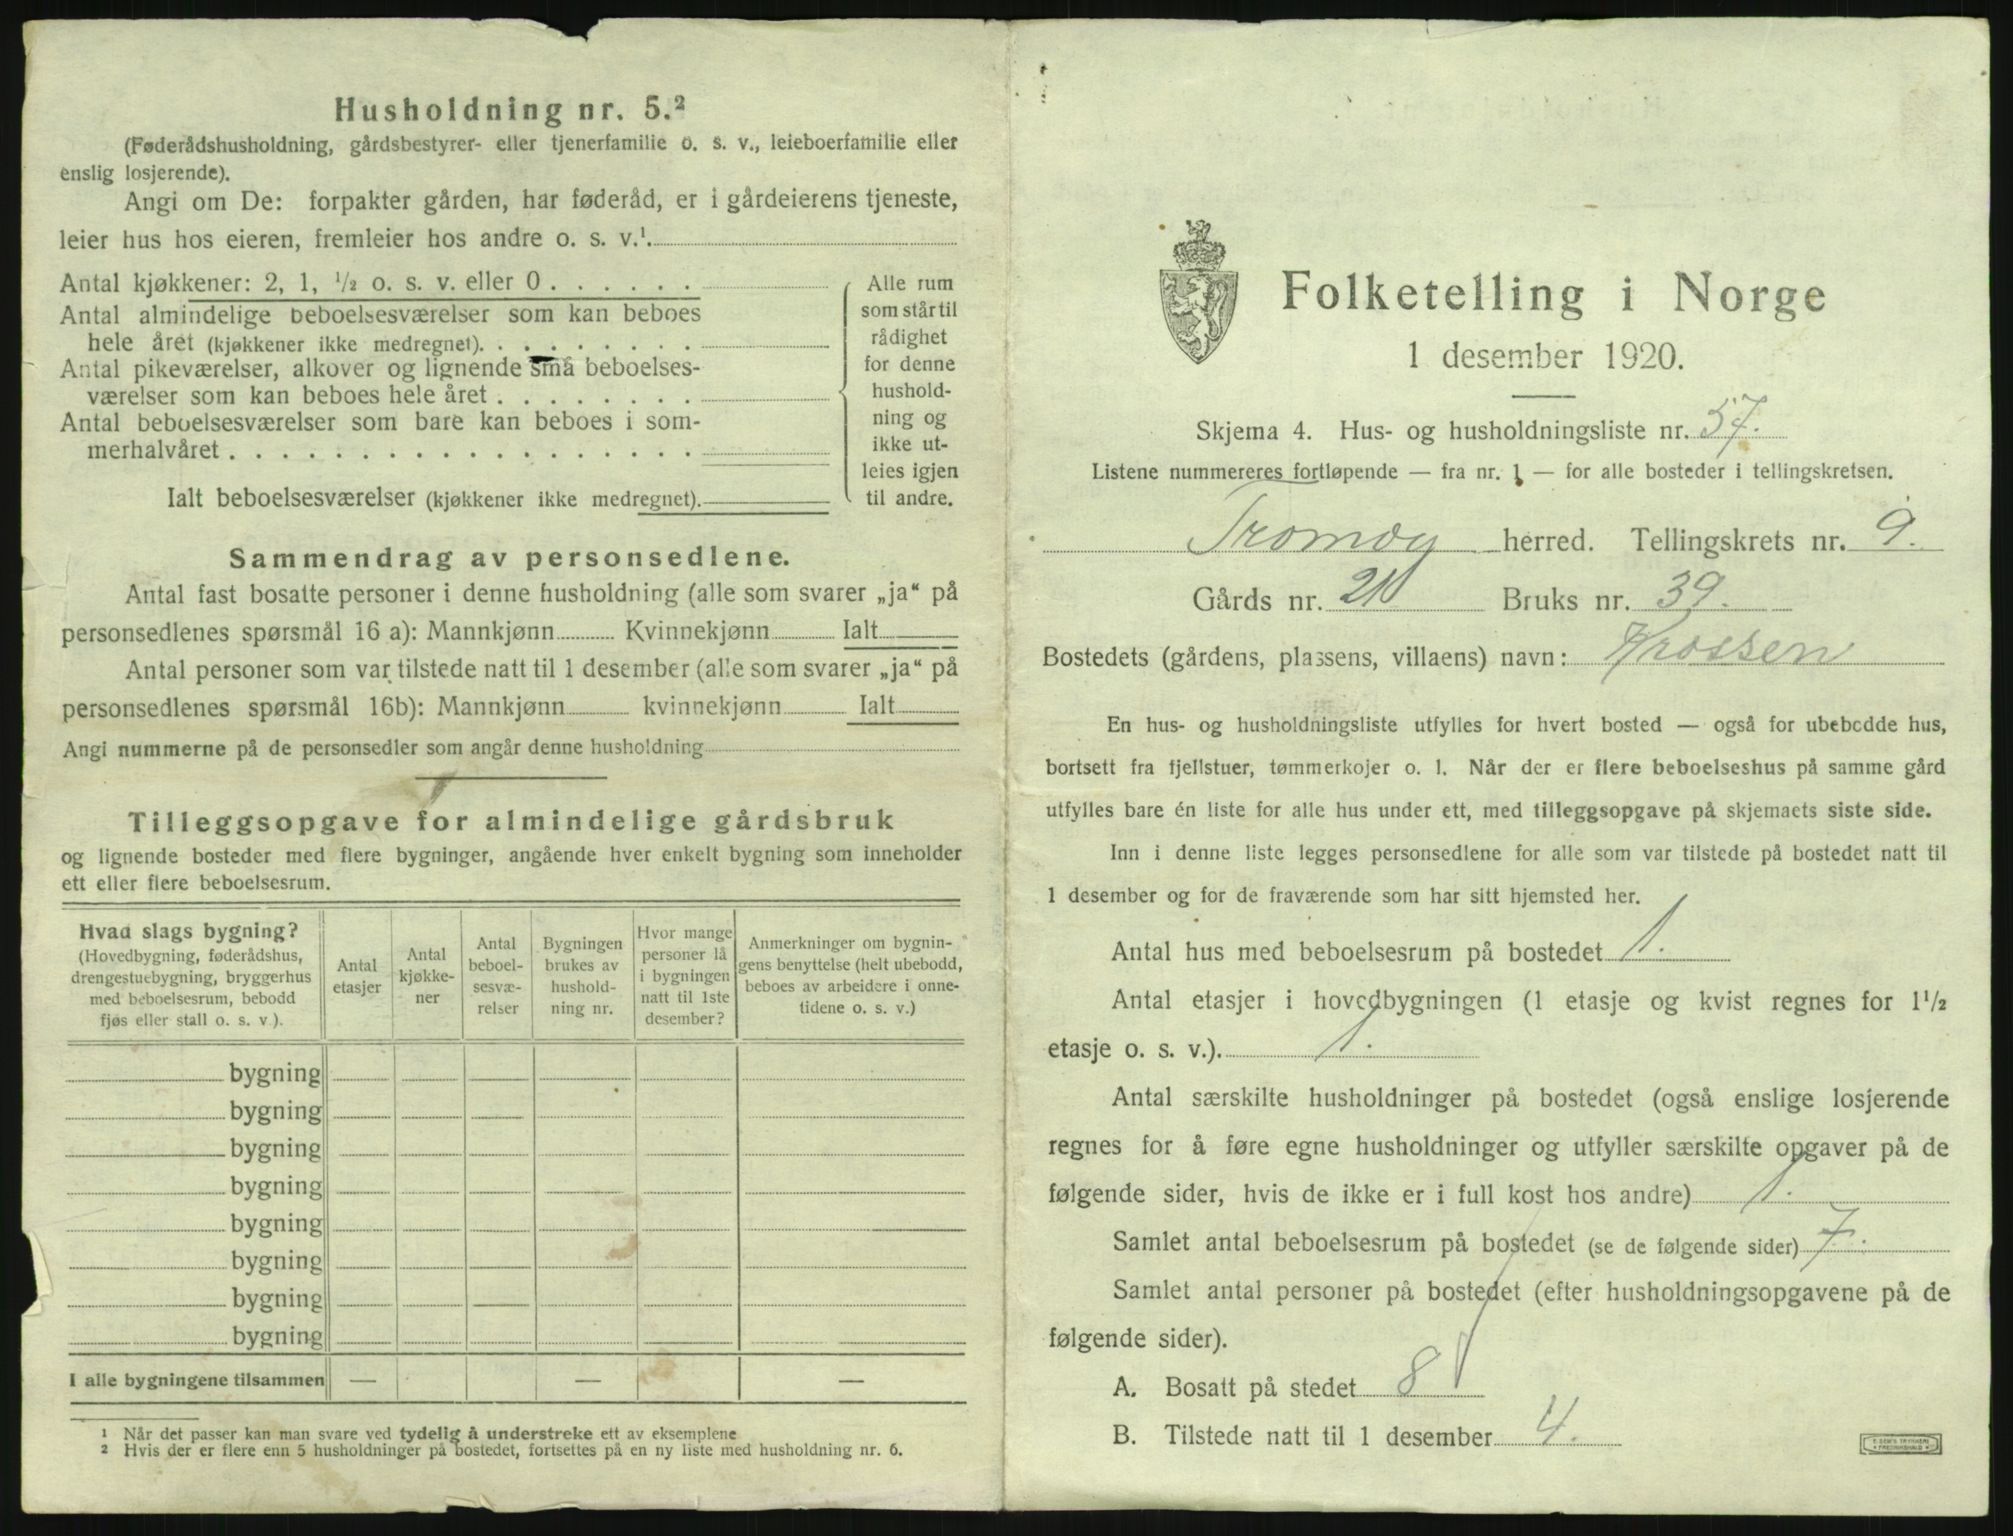 Husholdning nr. 5.²
(Føderådshusholdning, gårdsbestyrer- eller tjenerfamilie o. s. v., leieboerfamilie eller
enslig losjerende).
Angi om De: forpakter gården, har føderåd, er i gårdeierens tjeneste,
leier hus hos eieren, fremleier hos andre o. s. v.¹.
Antal kjøkkener: 2, 1, ¹/₂ o. s. v. eller 0 . . . . . .
Antal almindelige beboelsesværelser som kan beboes
hele året (kjøkkener ikke medregnet). . . . . . . . .
Antal pikeværelser, alkover og lignende små beboelses-
værelser som kan beboes hele året . . . . . . . .
Antal beboelsesværelser som bare kan beboes i som-
merhalvåret . . . . . . . . . . . . . . . . . .
Ialt beboelsesværelser (kjøkkener ikke medregnet).
Alle rum
som står til
rådighet
for denne
hushold-
ning og
ikke ut-
leies igjen
til andre.
Sammendrag av personsedlene.
Antal fast bosatte personer i denne husholdning (alle som svarer „ja“ på
personsedlenes spørsmål 16 a): Mannkjønn Kvinnekjønn Ialt
Antal personer som var tilstede natt til 1 desember (alle som svarer „ja“ på
personsedlenes spørsmål 16b): Mannkjønn kvinnekjønn Ialt
Angi nummerne på de personsedler som angår denne husholdning
Tilleggsopgave for almindelige gårdsbruk
og lignende bosteder med flere bygninger, angående hver enkelt bygning som inneholder
ett eller flere beboelsesrum.
Hvad slags bygning?
(Hovedbygning, føderådshus,
drengestuebygning, bryggerhus
med beboelsesrum, bebodd
fjøs eller stall o. s. v.).
Antal
etasjer
Antal
kjøkke-
ner
Antal
beboel-
sesvæ-
relser
Bygningen
brukes av
hushold-
ning nr.
Hvor mange
personer lå
i bygningen
natt til 1ste
desember?
Anmerkninger om bygnin-
gens benyttelse (helt ubebodd,
beboes av arbeidere i onne-
tidene o. s. v.)
bygning
bygning
bygning
bygning
bygning
bygning
bygning
bygning
I alle bygningene tilsammen — — —
¹ Når det passer kan man svare ved tydelig å understreke ett av eksemplene
² Hvis der er flere enn 5 husholdninger på bostedet, fortsettes på en ny liste med husholdning nr. 6.
Folketelling i Norge
1 desember 1920.
Skjema 4. Hus- og husholdningsliste nr. 57.
Listene nummereres fortløpende — fra nr. 1 — for alle bosteder i tellingskretsen.
Tromøy herred. Tellingskrets nr. 9.
Gårds nr. 21 Bruks nr. 39.
Bostedets (gårdens, plassens, villaens) navn: Krossen
En hus- og husholdningsliste utfylles for hvert bosted — også for ubebodde hus,
bortsett fra fjellstuer, tømmerkojer o. l. Når der er flere beboelseshus på samme gård
utfylles bare én liste for alle hus under ett, med tilleggsopgave på skjemaets siste side.
Inn i denne liste legges personsedlene for alle som var tilstede på bostedet natt til
1 desember og for de fraværende som har sitt hjemsted her.
Antal hus med beboelsesrum på bostedet 1.
Antal etasjer i hovedbygningen (1 etasje og kvist regnes for 1¹/₂
etasje o. s. v.). 1.
Antal særskilte husholdninger på bostedet (også enslige losjerende
regnes for å føre egne husholdninger og utfyller særskilte opgaver på de
følgende sider, hvis de ikke er i full kost hos andre) 1.
Samlet antal beboelsesrum på bostedet (se de følgende sider) 7.
Samlet antal personer på bostedet (efter husholdningsopgavene på de
følgende sider).
A. Bosatt på stedet 8
B. Tilstede natt til 1 desember 4.